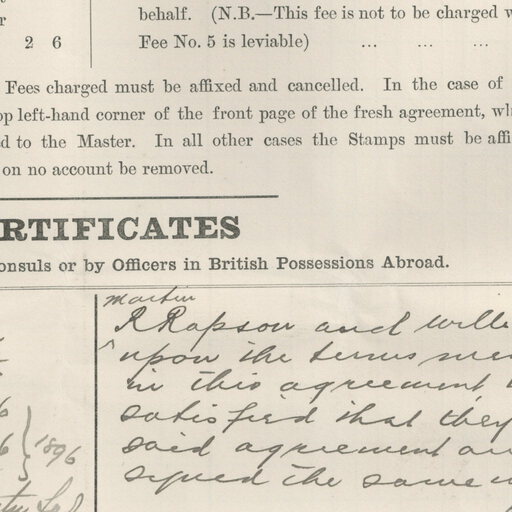 r
behalf. (N.B.—This fee is not to be charged w
2 6 Fee No. 5 is leviable) ... ... ...
Fees charged must be affixed and cancelled. In the case of
op left-hand corner of the front page of the fresh agreement, wh
d to the Master. In all other cases the Stamps must be affi
on no account be removed.
RTIFICATES
onsuls or by Officers in British Possessions Abroad.
martin
R Rapson and Wille
upon the terms men
in this agreement
satisfied that they
6 } 1896 said agreement an
signed the same